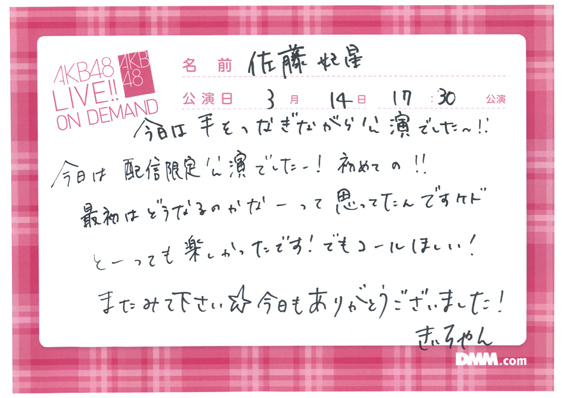 AKB48
LIVE!!
ON DEMAND
AKB
48
名前 佐藤妃星
公演日 3月 14日 17:30 公演
今日は手をつなぎながら公演でした〜!!
今日は配信限定公演でしたー! 初めての!!
最初はどうなるのかなーって思ってたんですケド
とーっても楽しかったです! でもコールほしい!
またみて下さい☆今日もありがとうございました!
きぃちゃん
DMM.com